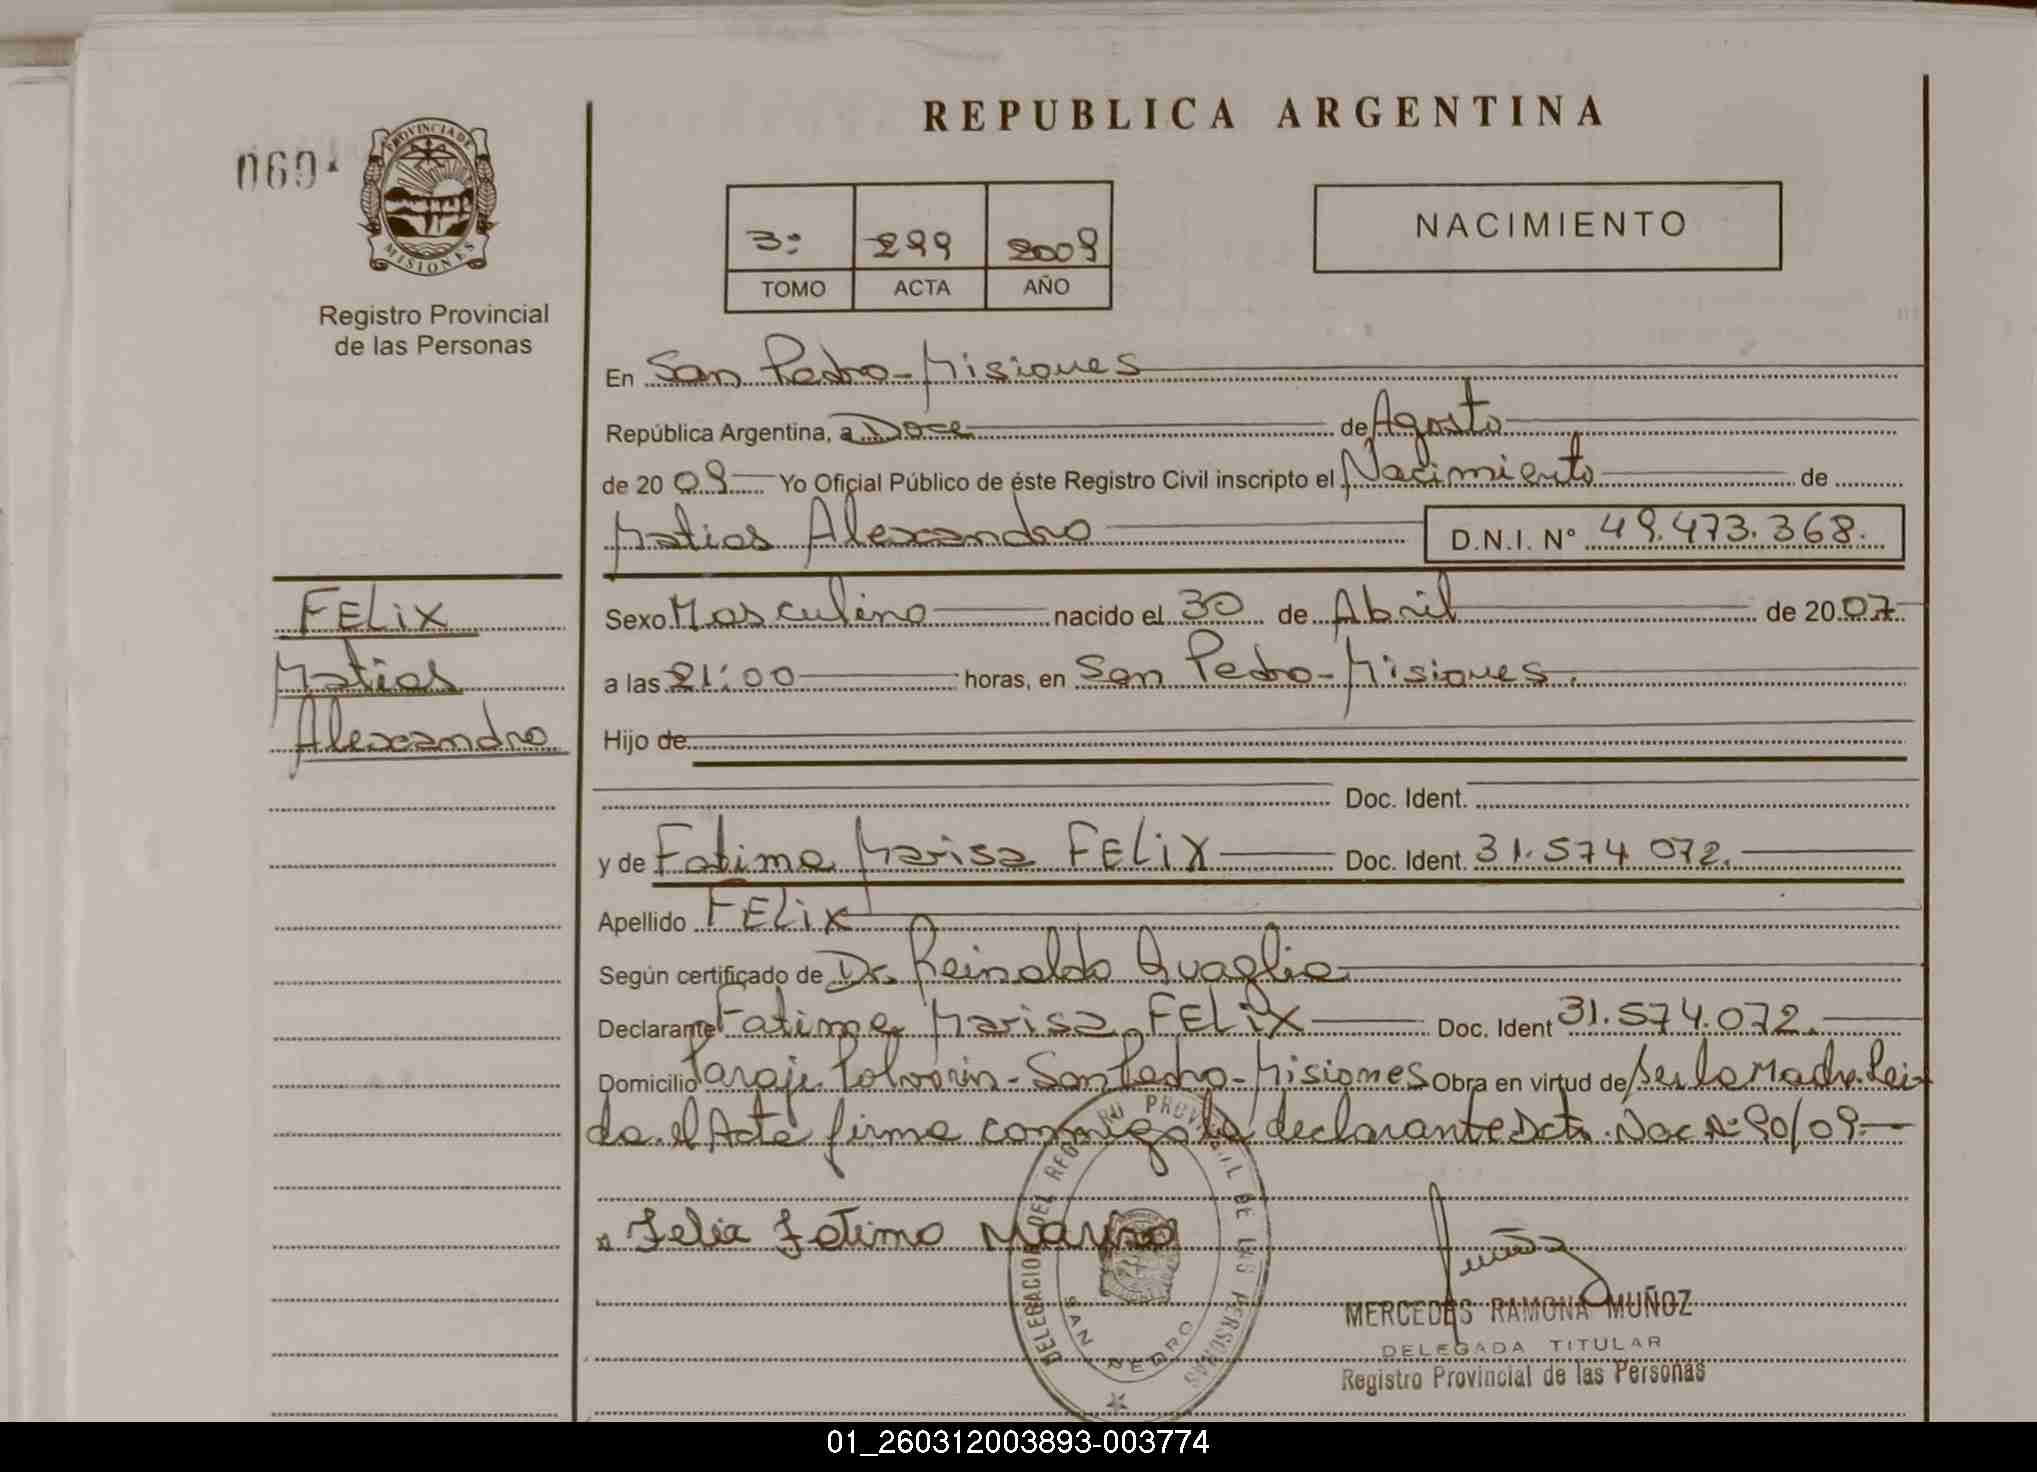 REPUBLICA ARGENTINA
069
PROVINCIA DE
MISIONES
Registro Provincial
de las Personas
3º 299 2009
TOMO ACTA AÑO
NACIMIENTO
En San Pedro - Misiones
República Argentina, a Doce de Agosto
de 20 09 Yo Oficial Público de éste Registro Civil inscripto el Nacimiento de
Matias Alexandro D.N.I. Nº 49.473.368.
FELIX
Matias
Alexandro
Sexo Masculino nacido el 30 de Abril de 20 07
a las 21:00 horas, en San Pedro - Misiones.
Hijo de
Doc. Ident.
y de Fatima Marisa FELIX Doc. Ident. 31.574 072.
Apellido FELIX
Según certificado de Dr. Reinaldo Quaglia
Declarante Fatima Marisa FELIX Doc. Ident 31.574.072.
Domicilio Paraje Polvorin - San Pedro - Misiones Obra en virtud de Ser la Madre. Lei
da el Acta firma conmigo la declarante Dcto. Nac Nº 90/09.-
Felix Fatima
DELEGACION DEL REGISTRO PROVINCIAL DE LAS PERSONAS
SAN PEDRO
MERCEDES RAMONA MUÑOZ
DELEGADA TITULAR
Registro Provincial de las Personas
01_260312003893-003774